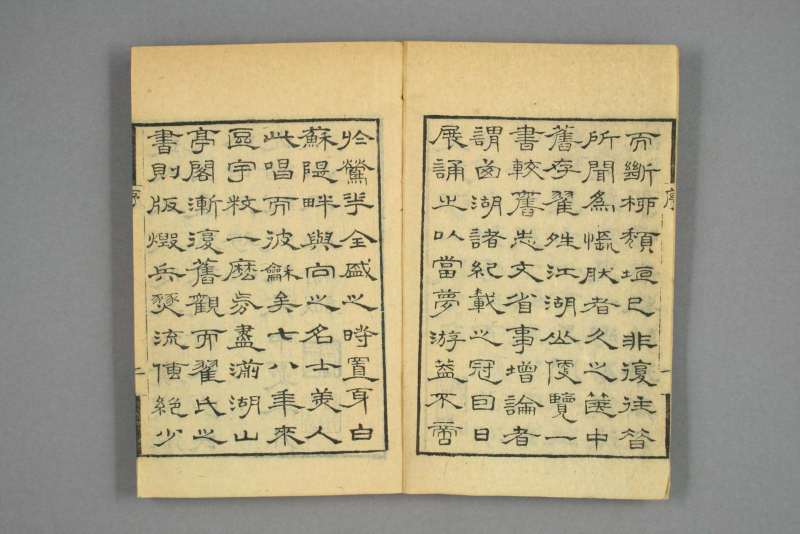 而斷柳頹垣已非復往昔
所聞為悵肰者久之篋中
舊存翟夝江湖山便覽一
書較舊志文省事增論者
謂西湖諸紀載之冠囙日
展誦之以當夢游葢不啻
序
一
於鶯華全盛之時置身白
蘇隄畔與向之名士美人
此唱而彼龢矣七八年來
區宇敉一塵氛盡湖山
亭閣漸復舊觀而翟氏之
書則版燬兵燹流傳絕少
序
二